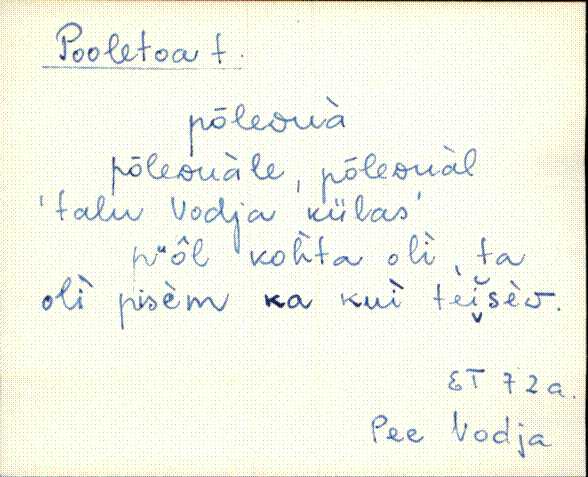 Pooletoa t.
pōleᴅuà
pōleᴅuàle, pōleᴅuàl
'talu Vodja külas'
pᵘôl kohta olì, ta
olì pisèm ka kuì tèi̬šèᴅ.
ET 72a.
Pee Vodja